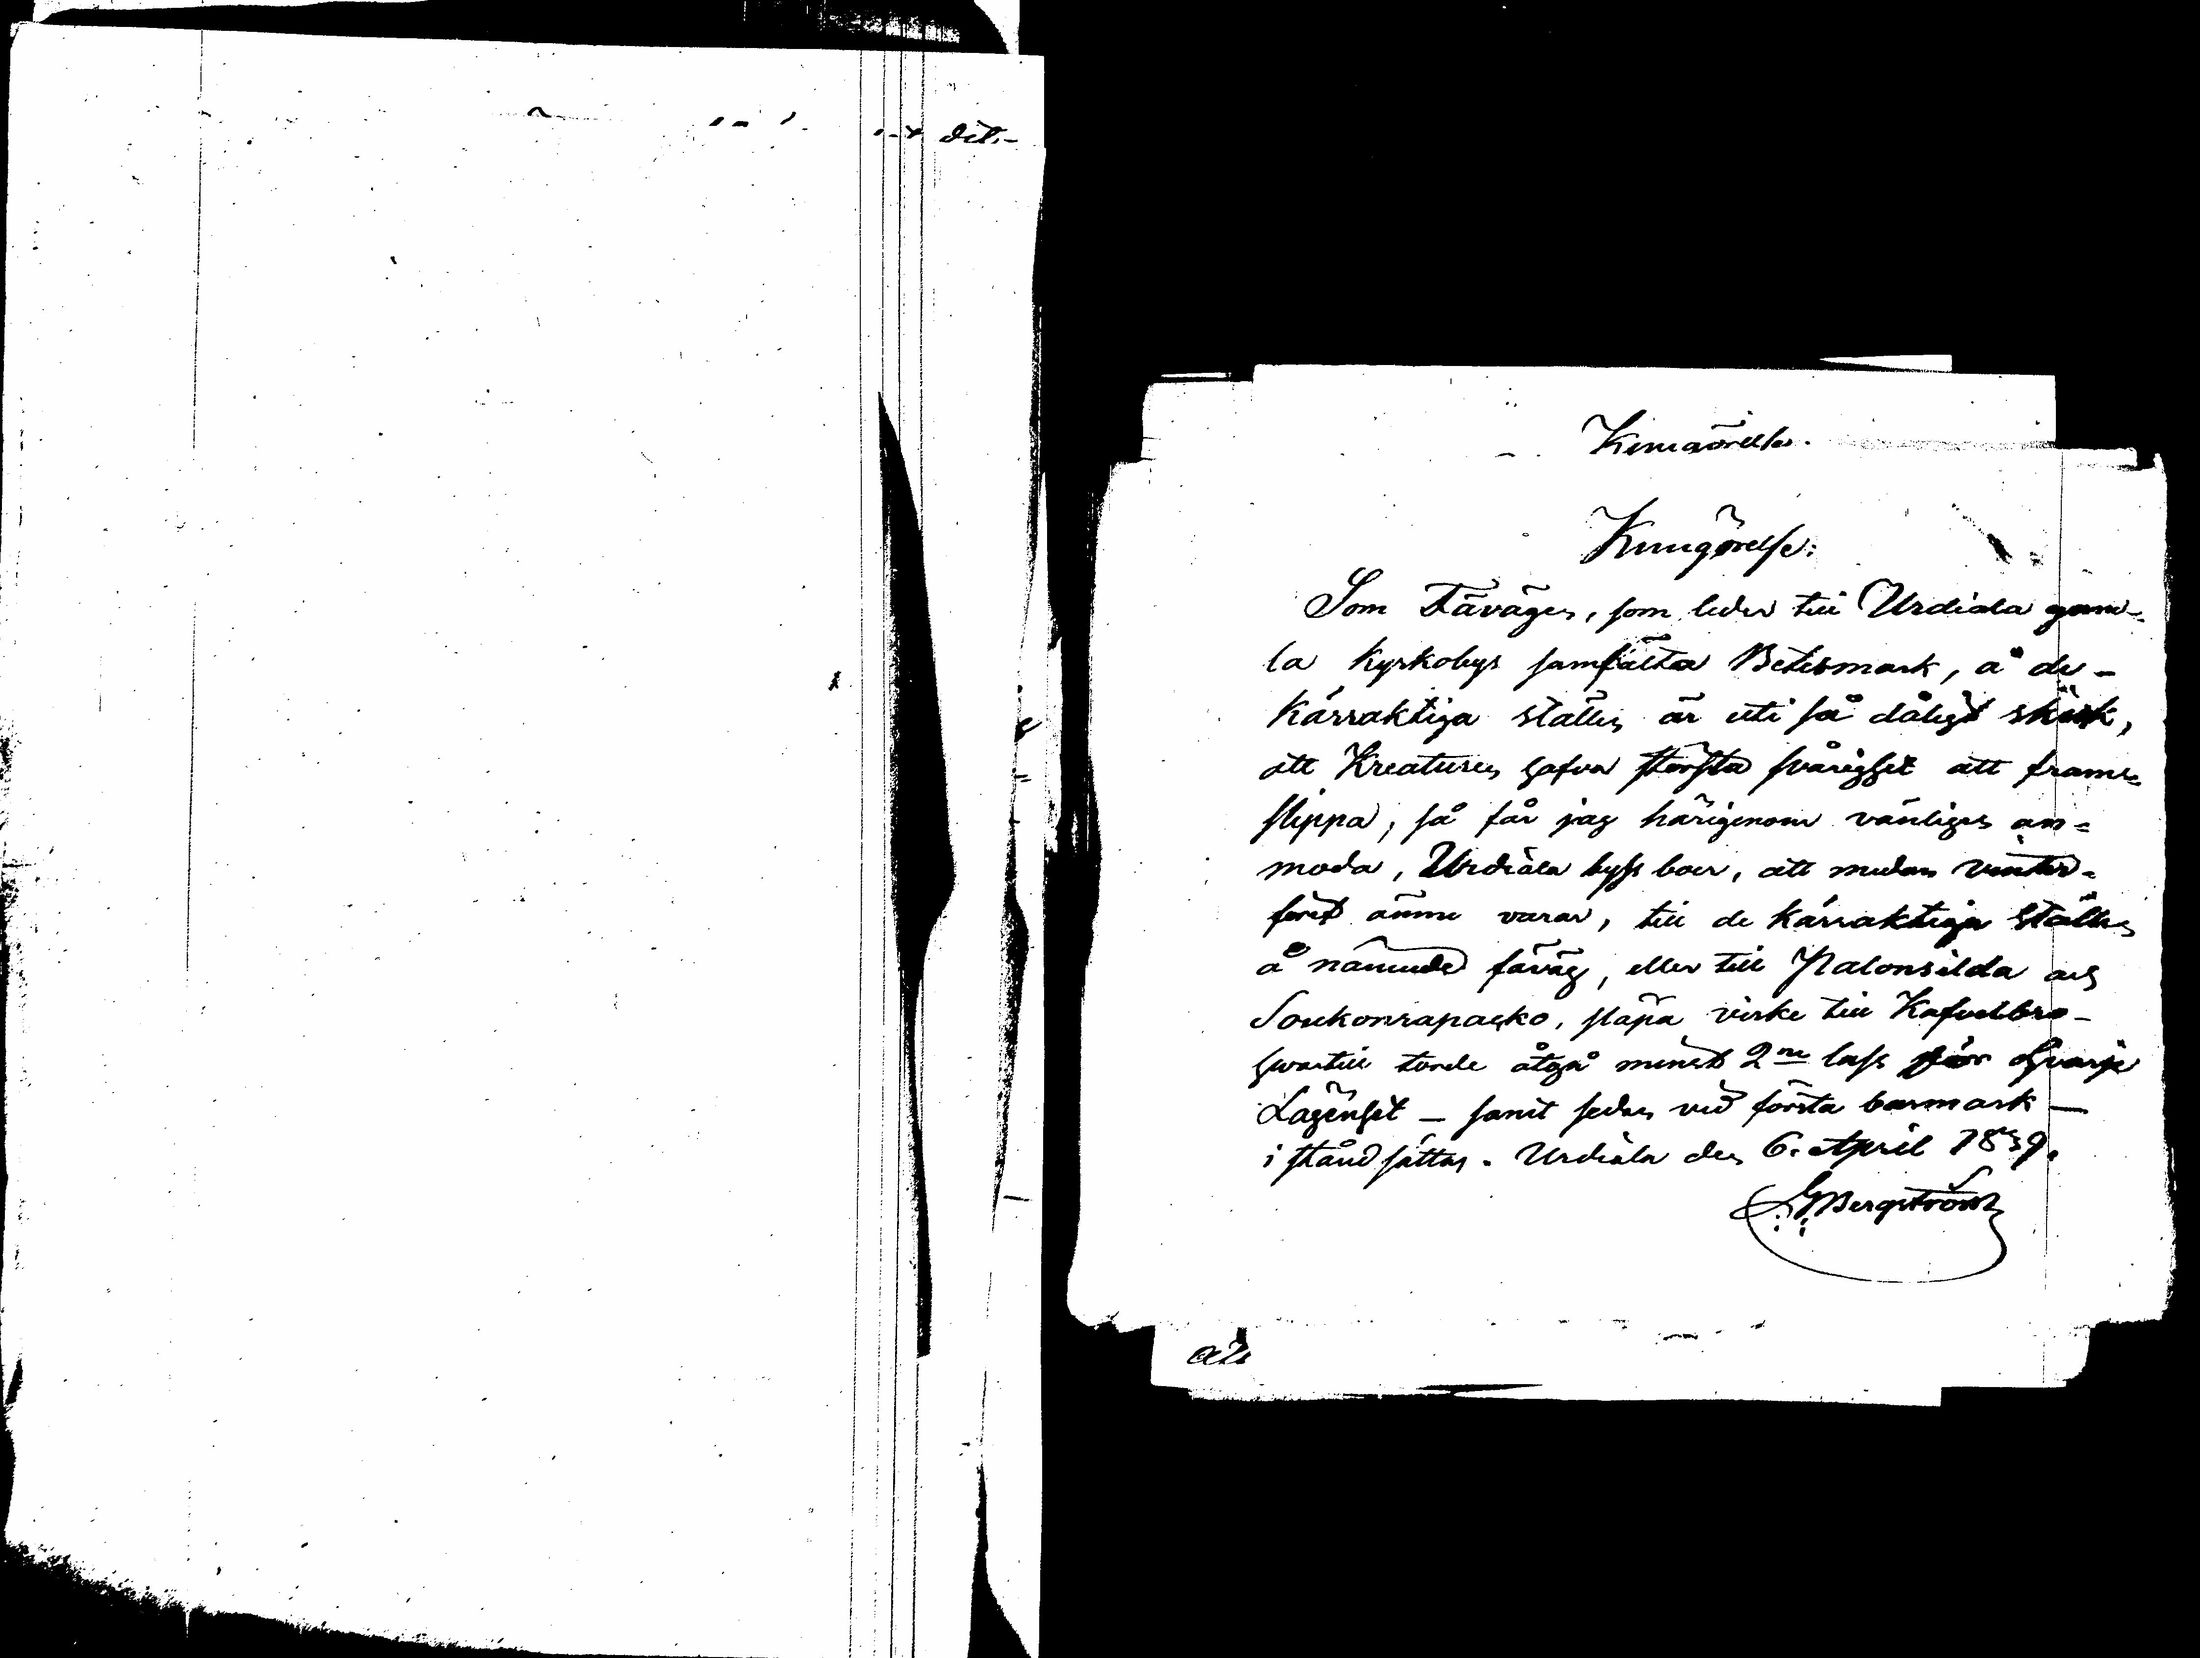 dit.
Kungörelse.
Kungörelse:
Som Fävägen, som leder till Urdiala gam-
la Kyrkobys samfälta Betesmark, å de -
Kärraktiga ställen är uti så dåligt skick,
att Kreaturen hafva största svårighet att fram-
slippa, så får jag härigenom vänligen an-
moda, Urdiala byss boer, att medan vinter-
föret ännu varar, till de kärraktiga ställen
å nämnde fäväg, eller till Palonsilda och
Soukonrapacko, släpa virke till Kafvelbro -
hvartill torde åtgå minst 2ne lass för hvarje
Lägenhet - samt sedan vid första barmark -
i stånd sättas. Urdiala den 6. April 1859.
Bergström